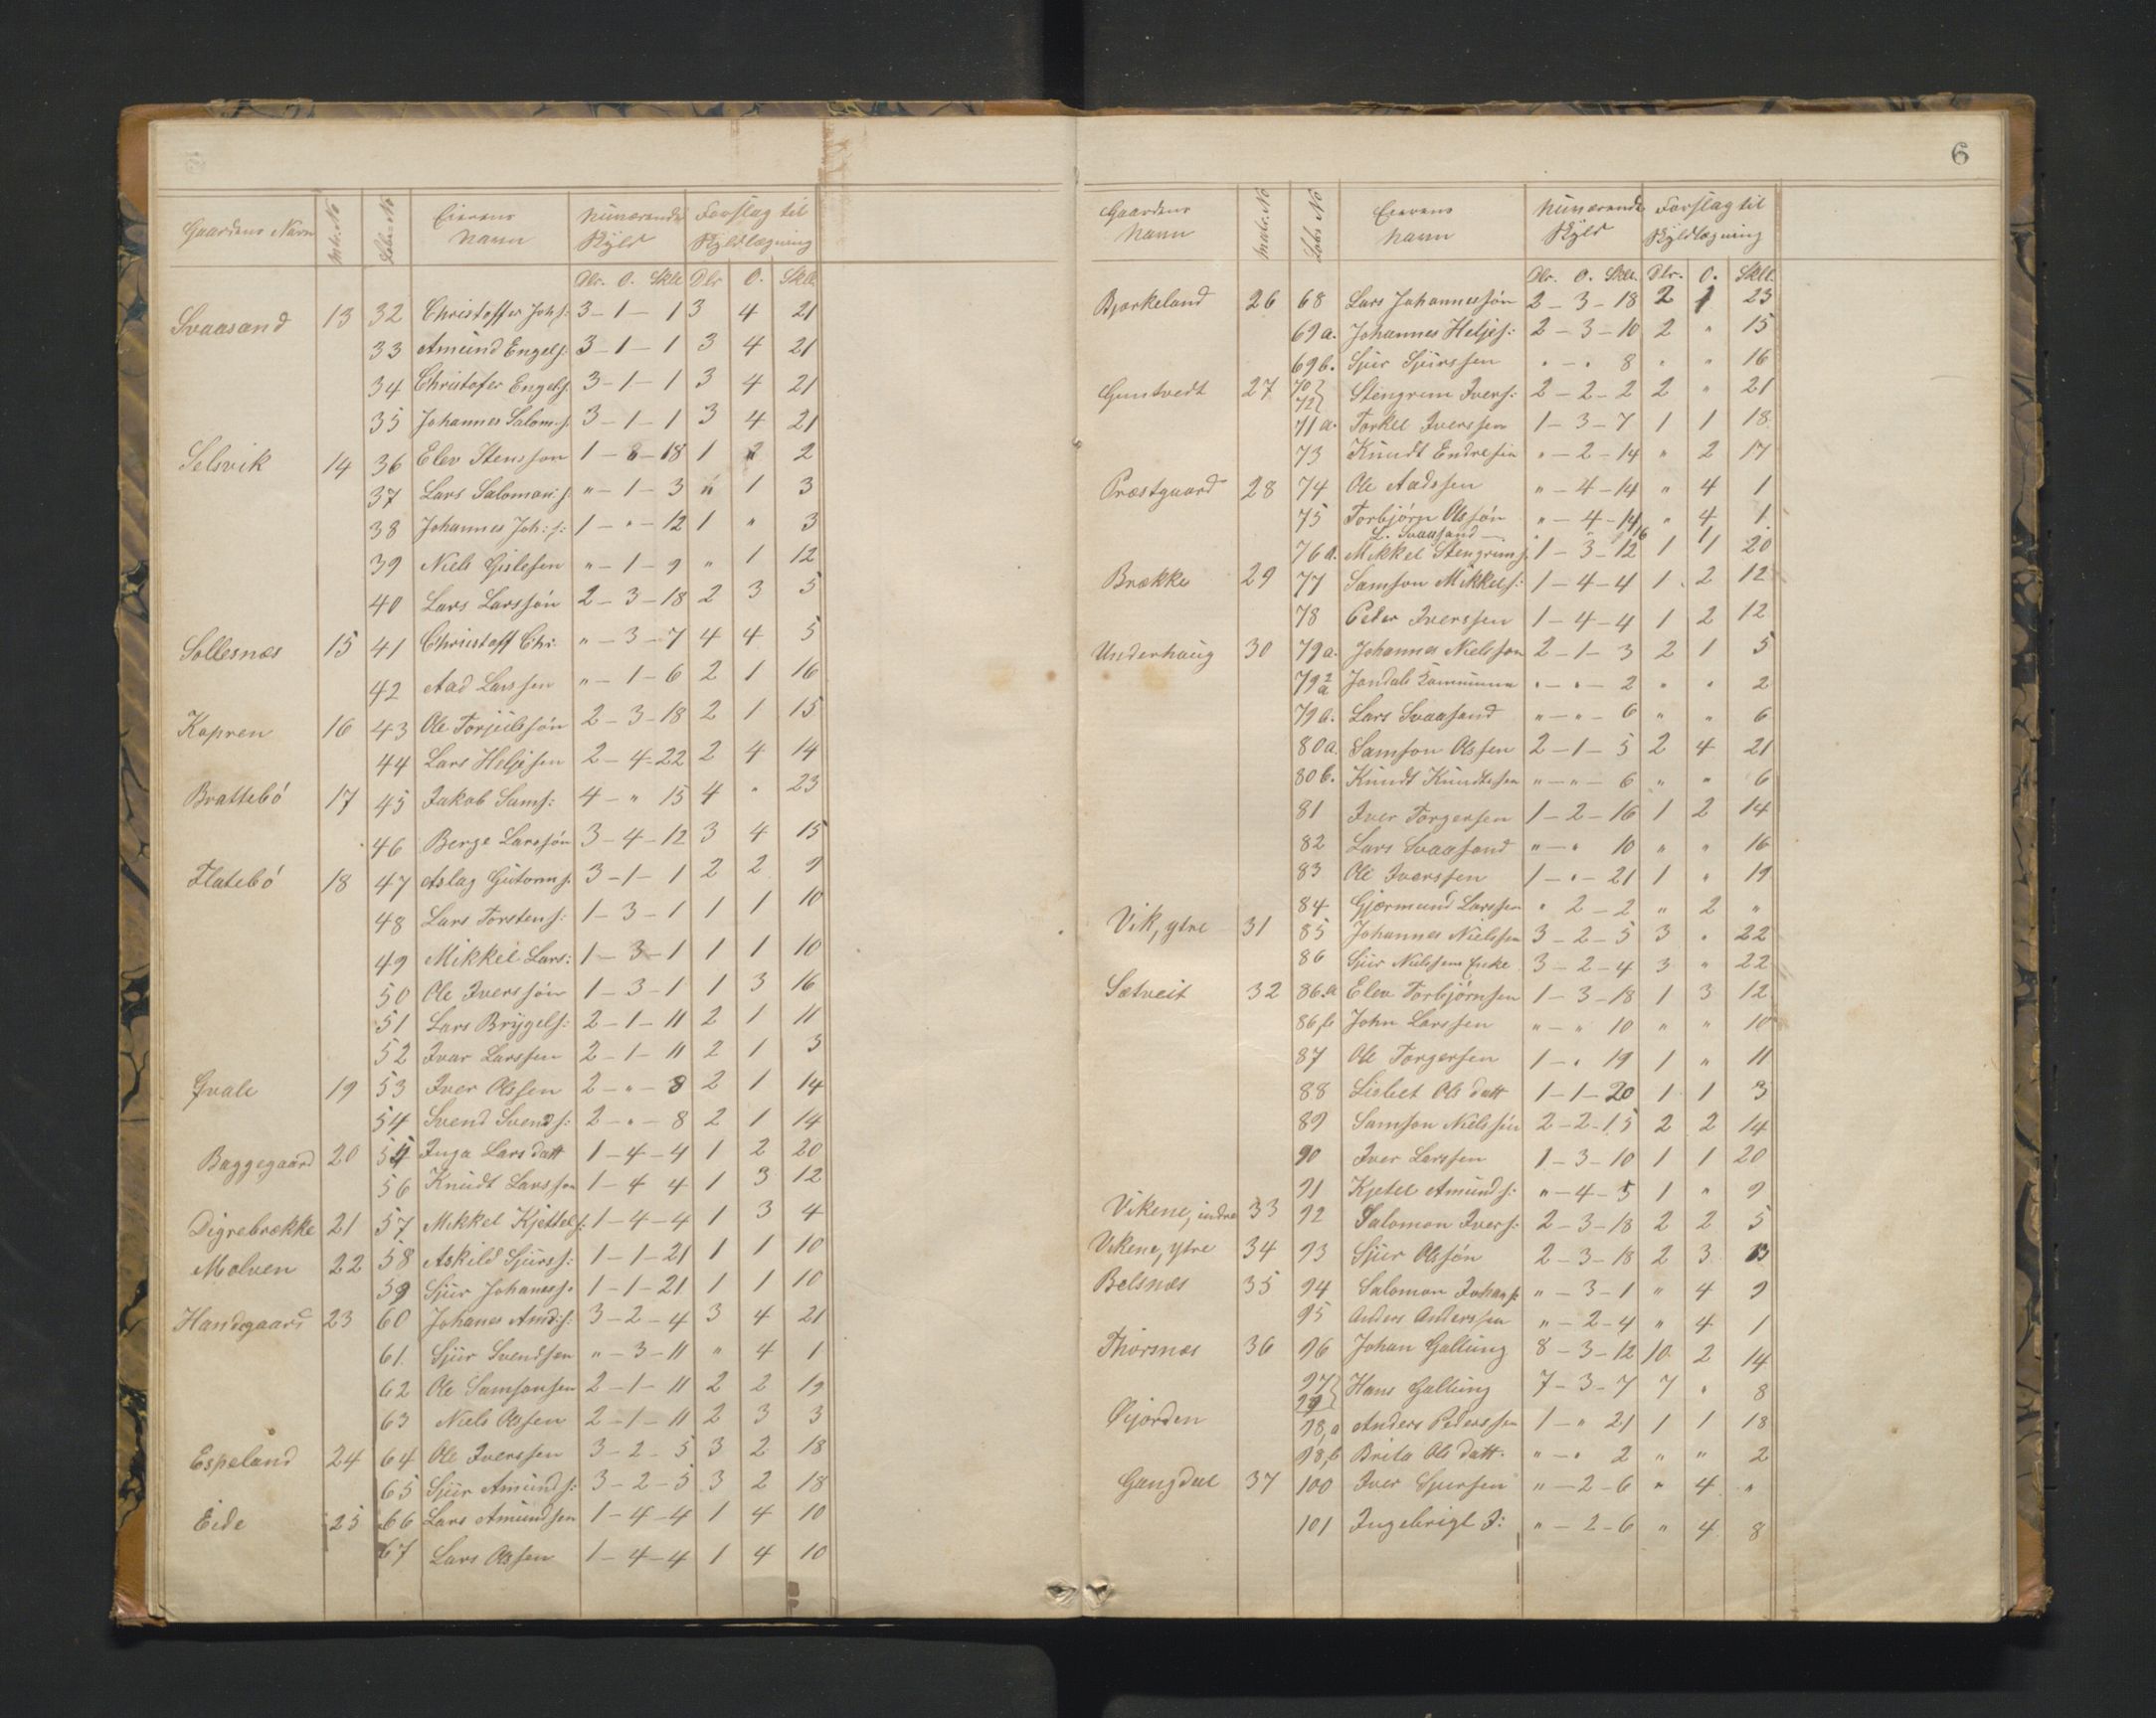 Gaardens Navn Mtr. No Løbe No Eierens Navn Nuværende Skyld Forslag til Skyldlægning
Dlr. O. Skll. Dlr O. Skll.
Svaasand 13 32 Christoffer Joh:s: 3 – 1 – 1 3 4 21
33 Amund Engels: 3 – 1 – 1 3 4 21
34 Christofer Engels: 3 – 1 – 1 3 4 21
35 Johannes Salom:s: 3 – 1 – 1 3 4 21
Selsvik 14 36 Elev Stenssøn 1 – – 18 1 2
37 Lars Salomon:s: " – 1 – 3 " 1 3
38 Johannes Joh:s: 1 – " – 12 1 " 3
39 Niels Gislesen " – 1 – 9 " 1 12
40 Lars Larssøn 2 – 3 – 18 2 3 5
Sollesnæs 15 41 Christoff Chr: " – 3 – 7 4 4 5
42 Aad Larssen " – 1 – 6 2 1 16
Kapren 16 43 Ole Torjulssøn 2 – 3 – 18 2 1 15
44 Lars Heljesen 2 – 4 – 22 2 4 14
Brattebó 17 45 Jakob Sams: 4 – " 15 4 " 23
46 Berge Larssøn 3 – 4 – 12 3 4 15
Flatebó 18 47 Aslag Gutorms: 3 – 1 – 1 2 2 9
48 Lars Torstens: 1 – 3 – 1 1 1 10
49 Mikkel Lars: 1 – 3 – 1 1 1 10
50 Ole Iverssøn 1 – 3 – 1 1 3 16
51 Lars Brygels: 2 – 1 – 11 2 1 11
52 Ivar Larssen 2 – 1 – 11 2 1 3
Qvale 19 53 Iver Olssen 2 – " – 8 2 1 14
54 Svend Svends: 2 – " – 8 2 1 14
Baggegaard 20 Inga Larsdatt 1 – 4 – 4 1 2 20
56 Knudt Larssen 1 – 4 4 1 3 12
Digrebrække 21 57 Mikkel Kjettels: 1 – 4 – 4 1 3 4
Molven 22 58 Askild Sjurs: 1 – 1 – 21 1 1 10
59 Sjur Johaness: 1 – 1 – 21 1 1 10
Handegaard 23 60 Johanes Amd:s: 3 – 2 – 4 3 4 21
61. Sjur Svendsen " – 3 – 11 " 4 1
62 Ole Samsonsen 2 – 1 – 11 2 2 19
63 Niels Olssen 2 – 1 – 11 2 3 3
Espeland 24 64 Ole Iverssen 3 – 2 – 5 3 2 18
65 Sjur Amunds: 3 – 2 – 5 3 2 18
Eide 25 66 Lars Amundsen 1 – 4 – 4 1 4 10
67 Lars Olssen 1 – 4 – 4 1 4 10
6
Gaardens Navn Matr. No Løbe No Eierens Navn Nuværende Skyld Forslag til Skyldlægning
Dlr. O. Skll. Dlr. O. Skll.
Bjørkeland 26 68 Lars Johannessøn 2 – 3 – 18 2 1 23
69 a. Johannes Heljes: 2 – 3 – 10 2 " 15
69 b. Sjur Sjurssen " – " 8 " " 16
Guntvedt 27 70} 72} Stengrim Ivers: 2 – 2 – 2 2 " 21
71 a. Torkel Iverssen 1 – 3 – 7 1 1 18
73 Knudt Endresen " – 2 – 14 " 2 17
Præstgaard 28 74 Ole Aadssen " – 4 – 14 " 4 1
75 Torbjørn Olssøn " – 4 – 14 " 4 1
L. Svaasand – " " 16 1
76 a. Mikkel Stengrims: 1 – 3 – 12 1 1 20
Brække 29 77 Samson Mikkels: 1 – 4 – 4 1 2 12
78 Peder Iverssen 1 – 4 – 4 1 2 12
Underhaug 30 79 a. Johannes Nielsson 2 – 1 – 3 2 1 5
79 a² Jondals Kommune " – " – 2 " " 2
79 b. Lars Svaasand " – " – 6 " " 6
80 a. Samson Olssen 2 – 1 – 5 2 4 21
80 b. Knudt Knudtssen " – " – 6 " " 6
81 Iver Torgersen 1 – 2 – 16 1 2 14
82 Lars Svaasand " – " 10 " " 16
83 Ole Iverssen 1 – " – 21 1 " 19
84 Gjermund Larssen " 2 – 2 " 2 "
Vik, ytre 31 85 Johannes Nielssen 3 – 2 – 5 3 " 22
86 Sjur Nielssens Enke 3 – 2 – 4 3 " 22
Sætveit 32 86.a Elev Torbjørnsen 1 – 3 – 18 1 3 12
86,b John Larssen " – " 10 " " 10
87 Ole Torgersen 1 – " 19 1 " 11
88 Lisbet Olsdatt 1 – 1 – 20 1 1 3
89 Samson Nielssøn 2 – 2 – 15 2 2 14
90 Iver Larssen 1 – 3 – 10 1 1 20
91 Kjetel Amunds: " – 4 – 5 1 " 9
Vikene, indre 33 92 Salomon Ivers: 2 – 3 – 18 2 2 5
Vikene, ytre 34 93 Sjur Olssøn 2 – 3 – 18 2 3 13
Belsnæs 35 94 Salomon Johans: " – 3 – 1 " 4 9
95 Anders Anderssen " – 2 – 4 " 4 1
Thorsnæs 36 96 Johan Galtung 8 – 3 – 12 10 2 14
97} 99} Hans Galtung 7 – 3 – 7 7 " 8
Øijorden 98,a Anders Pederssen 1 – " 21 1 1 18
98,b Brita Olsdatt. " – " 2 " " 2
Gangdal 37 100 Iver Sjursen " – 2 – 6 " 4 "
101 Ingebrigt I: " – 2 – 6 " 4 8